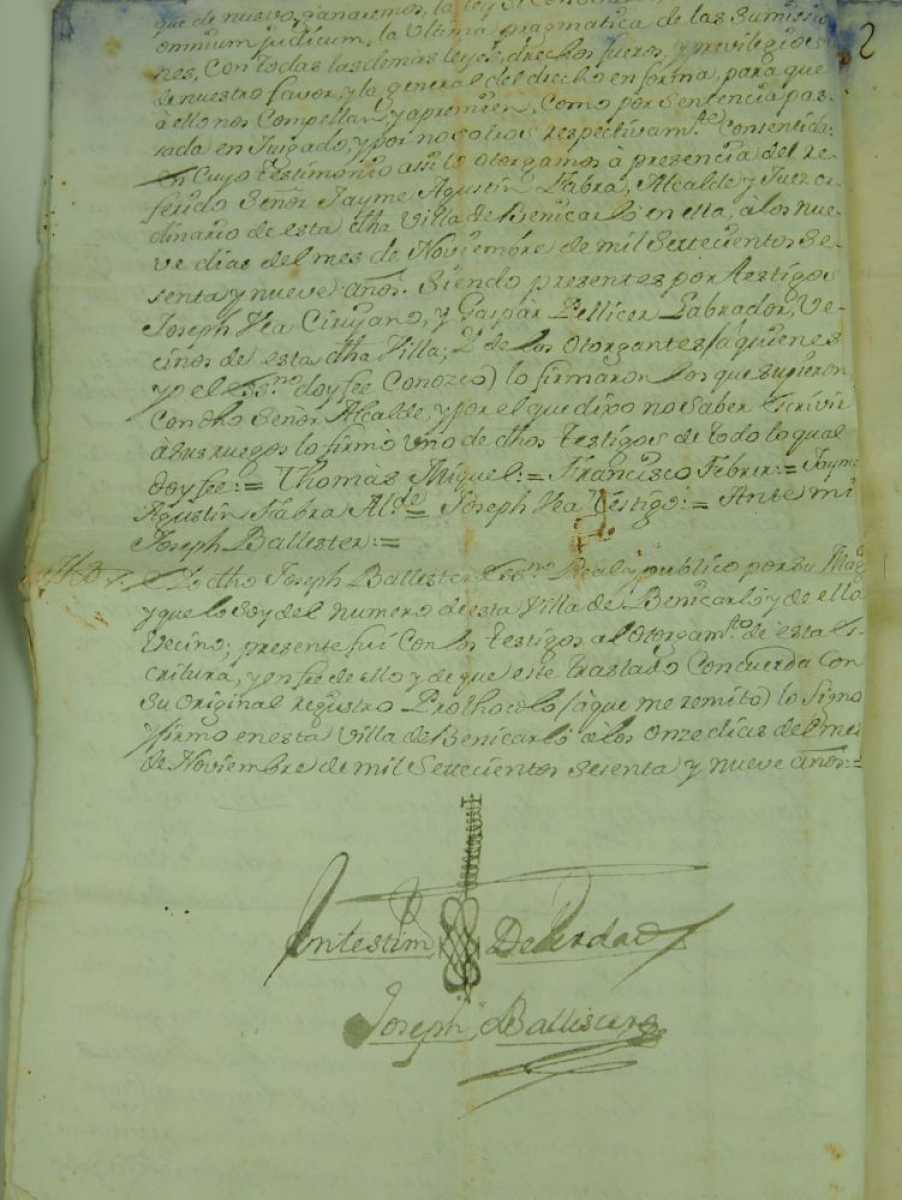 2
que de nuevo ganaremos, la ley si
omnium judicum, la Ultima pragmatica de las Sumissio
nes, con todas las demás leyes, drechos fueros, y privilegios
de nuestro favor, y la general del drecho en forma, para que
à ello nos Compellan y apremien, Como por Sentencia pas-
sada en Juzgado, y por nosotros respectivam.te Consentida:
En Cuyo testimonio assi lo otorgamos à presencia del re-
ferido Señor Jayme Agustin Fabra, Alcalde y Juez or-
dinario de esta dha Villa de Benicarló en ella, à los nue-
ve dias del mes de Noviembre de mil Settecientos Se-
senta y nueve años. Siendo presentes por testigos
Joseph Vea Cirujano, y Gaspàr Pellicer Labrador, Ve-
cinos de esta dha Villa; Y de los Otorgantes (à quienes
yo el Ess.no doy fee Conozco) lo firmaron los que supieron
con dho Señor Alcalde, y por el que dixo no Saber Escrivir
à sus ruegos lo firmò uno de dhos testigos de todo lo qual
doy fee:= Thomàs Miquel:= Francisco Febrer:= Jayme
Agustin Fabra Al.de= Joseph Vea Testigo:= Ante mi
Joseph Ballester:=
Yo dho Joseph Ballester Ess.no Real y publico por su Mag
y que lo Soy del numero de esta Villa de Benicarló y de ella
Vecino; presente fui Con los testigos al Otorgam.to de esta Es-
critura, y en fee de ello y de que este traslado Concuerda Con
Su Original registro Prothocolo (à que me remito) lo Signo
y firmo en esta Villa de Benicarló à los onze dias del mes
de Noviembre de mil Settecientos Sesenta y nueve años:=
En testim De Verdad
Joseph Ballester